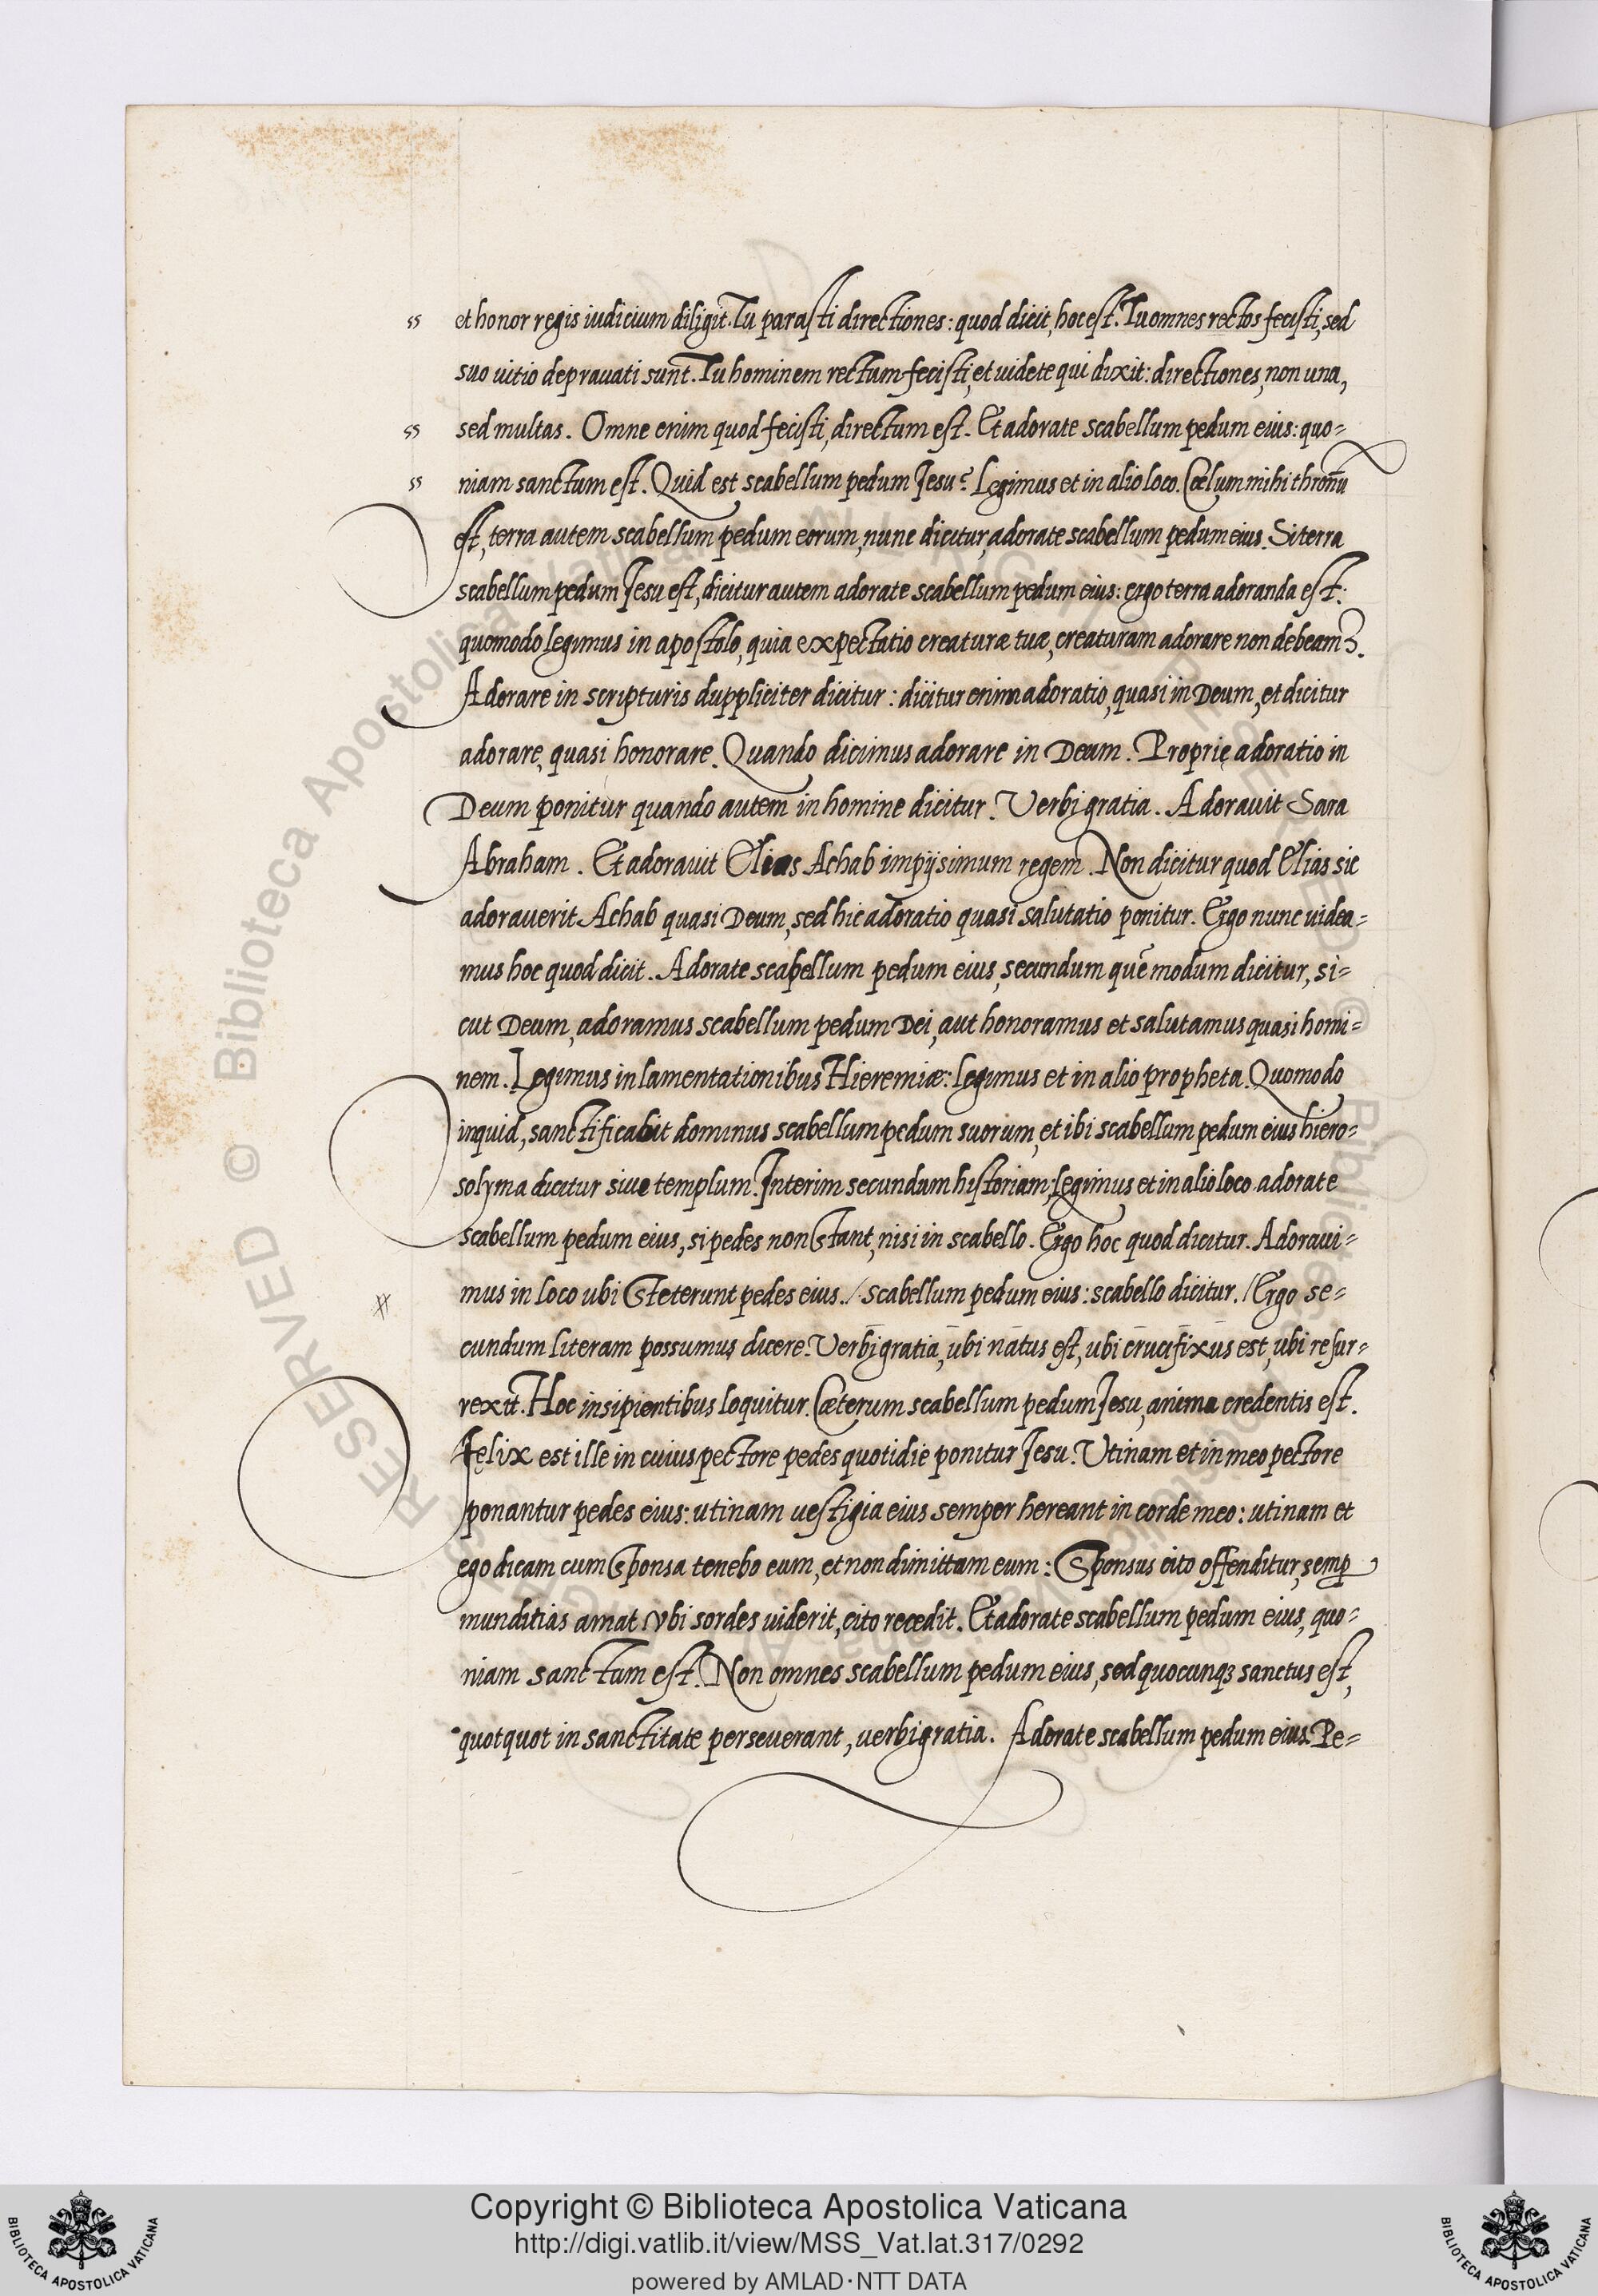 et honor regis iudicium diligit. Tu parasti directiones: quod dicit, hoc est. Tu omnes rectos fecisti, sed
suo uitio deprauati sunt. Tu hominem rectum fecisti, et uidete qui dixit: directiones, non una,
sed multas. Omne enim quod fecisti, directum est. Et adorate scabellum pedum eius: quo=
niam sanctum est. Quid est scabellum pedum Iesu? Legimus et in alio loco. Cælum mihi thronũ
est, terra autem scabellum pedum eorum, nunc dicitur, adorate scabellum pedum eius. Si terra
scabellum pedum Iesu est, dicitur autem adorate scabellum pedum eius: ergo terra adoranda est:
quomodo legimus in apostolo, quia expectatio creaturæ tuæ, creaturam adorare non debeamꝰ.
Adorare in scripturis duppliciter dicitur: dicitur enim adoratio, quasi in Deum, et dicitur
adorare, quasi honorare. Quando dicimus adorare in Deum. Proprię adoratio in
Deum ponitur quando autem in homine dicitur. Verbi gratia. Adorauit Sara
Abraham. Et adorauit Elias Achab impijsimum regem. Non dicitur quod Elias sic
adorauerit Achab quasi Deum, sed hic adoratio quasi salutatio ponitur. Ergo nunc uidea=
mus hoc quod dicit. Adorate scabellum pedum eius, secundum quẽ modum dicitur, si=
cut Deum, adoramus scabellum pedum Dei, aut honoramus et salutamus quasi homi=
nem. Legimus in lamentationibus Hieremiæ: legimus et in alio propheta. Quomodo
inquid, sanctificabit dominus scabellum pedum suorum, et ibi scabellum pedum eius hiero=
solyma dicitur siue templum. Interim secundum historiam; legimus et in alio loco adorate
scabellum pedum eius, si pedes non stant, nisi in scabello. Ergo hoc quod dicitur. Adoraui=
mus in loco ubi steterunt pedes eius./. scabellum pedum eius: scabello dicitur./ Ergo se=
cundum literam possumus dicere. Verbi gratia, ubi natus est, ubi crucifixus est, ubi resur=
rexit. Hoc insipientibus loquitur. Cæterum scabellum pedum Iesu, anima credentis est.
Felix est ille in cuius pectore pedes quotidie ponitur Iesu. Utinam et in meo pectore
ponantur pedes eius: utinam uestigia eius semper hereant in corde meo: utinam et
ego dicam cum sponsa tenebo eum, et non dimittam eum: Sponsus cito offenditur, semꝑ
munditias amat, vbi sordes uiderit, cito recedit. Et adorate scabellum pedum eius, quo=
niam sanctum est. Non omnes scabellum pedum eius, sed quocunqꝫ sanctus est,
quotquot in sanctitate perseuerant, uerbi gratia. Adorate scabellum pedum eius. Pe=
Copyright © Biblioteca Apostolica Vaticana
http://digi.vatlib.it/view/MSS_Vat.lat.317/0292
powered by AMLAD·NTT DATA
BIBLIOTECA APOSTOLICA VATICANA
BIBLIOTECA APOSTOLICA VATICANA